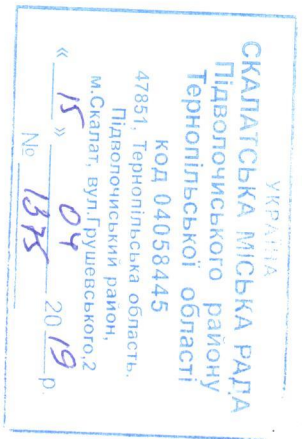 УКРАЇНА
СКАЛАТСЬКА МІСЬКА РАДА
Підволочиського району
Тернопільської області
код 04058445
47851, Тернопільська область,
Підволочиський район,
м.Скалат, вул.Грушевського,2
« 15 » 04 2019 р.
№ 1375